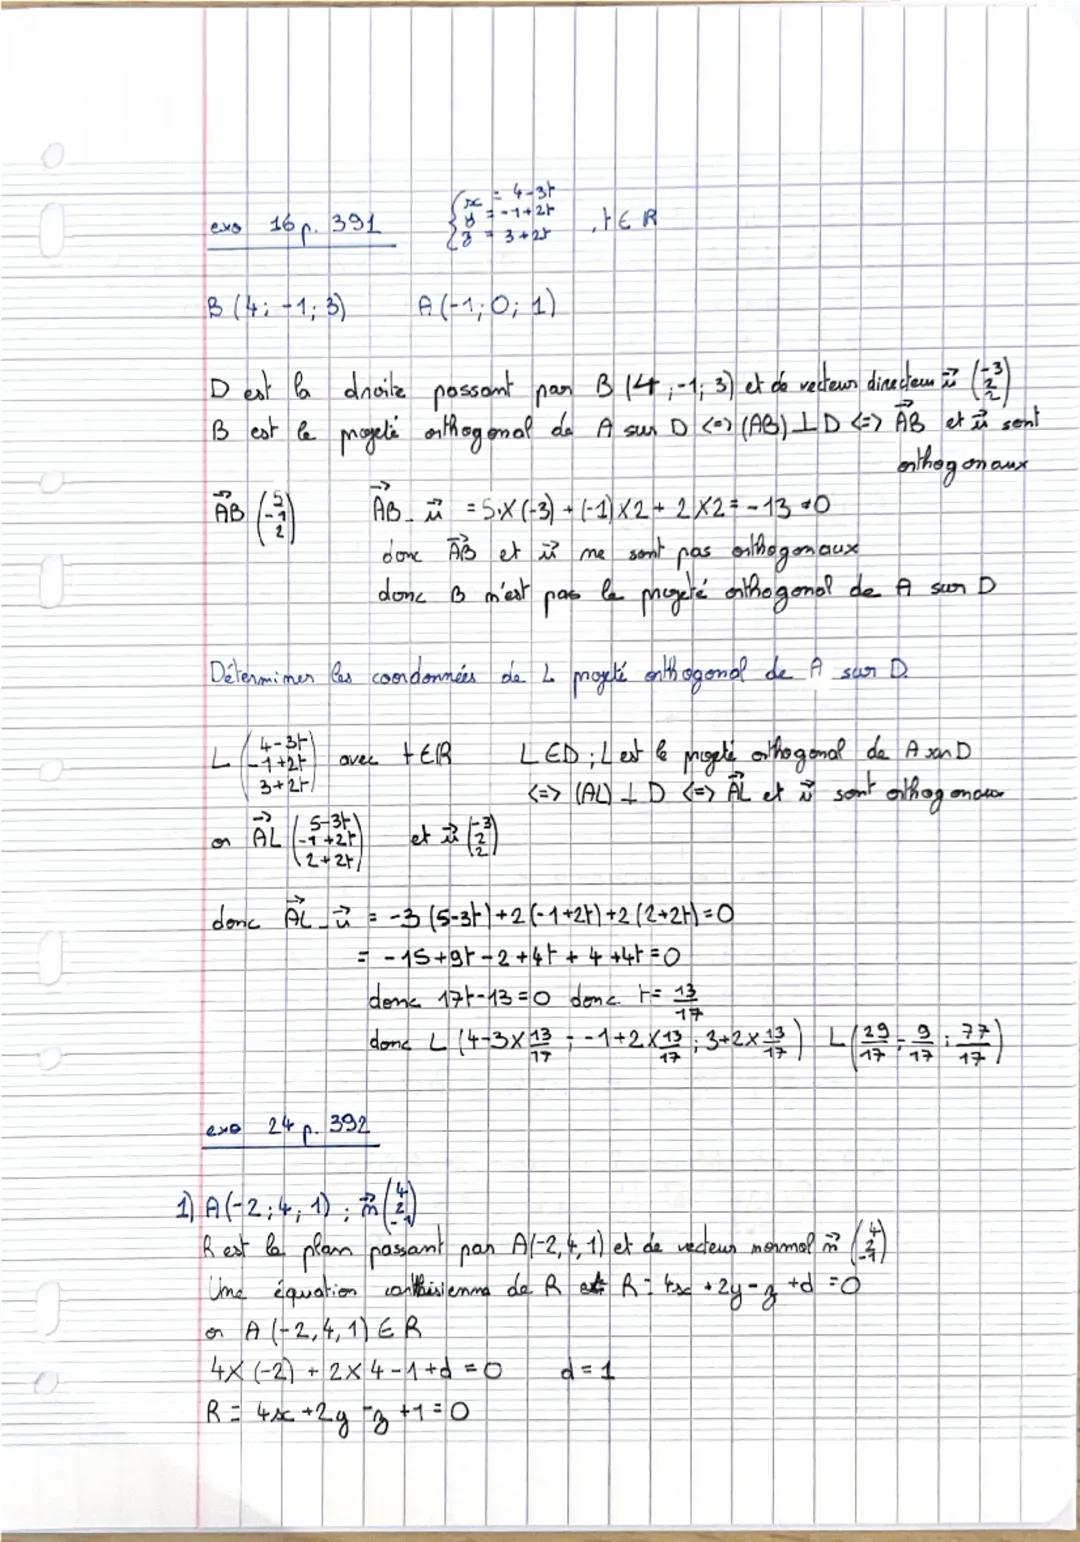 exo 16 p. 391
{x = 4-3t
y = -1+2t
z = 3+2t , t ∈ R
B (4; -1; 3) A (-1; 0; 1)
D est la droite passant par B (4; -1; 3) et de vecteur directeur u⃗ (-3 2 2)
B est le projeté orthogonal de A sur D <=> (AB) ⊥ D <=> AB⃗ et u⃗ sont
orthogonaux
AB⃗ (5 -1 2) AB⃗ . u⃗ = 5 × (-3) + (-1) × 2 + 2 × 2 = -13 ≠ 0
donc AB⃗ et u⃗ ne sont pas orthogonaux
donc B n'est pas le projeté orthogonal de A sur D
Déterminer les coordonnées de L projeté orthogonal de A sur D.
L (4-3t -1+2t 3+2t) avec t ∈ R L ∈ D ; L est le projeté orthogonal de A sur D
<=> (AL) ⊥ D <=> AL⃗ et u⃗ sont orthogonaux
or AL⃗ (5-3t -1+2t 2+2t) et u⃗ (-3 2 2)
donc AL⃗ . u⃗ = -3 (5-3t) + 2 (-1+2t) + 2 (2+2t) = 0
= -15 + 9t - 2 + 4t + 4 + 4t = 0
donc 17t - 13 = 0 donc t = 13/17
donc L (4-3×13/17 ; -1+2×13/17 ; 3+2×13/17) L (29/17 ; 9/17 ; 77/17)
exo 24 p. 392
1) A (-2; 4; 1) ; n⃗ (4 2 -1)
R est le plan passant par A (-2, 4, 1) et de vecteur normal n⃗ (4 2 -1)
Une équation carthésienne de R est R = 4x + 2y - z + d = 0
or A (-2, 4, 1) ∈ R
4 × (-2) + 2 × 4 - 1 + d = 0 d = 1
R = 4x + 2y - z + 1 = 0